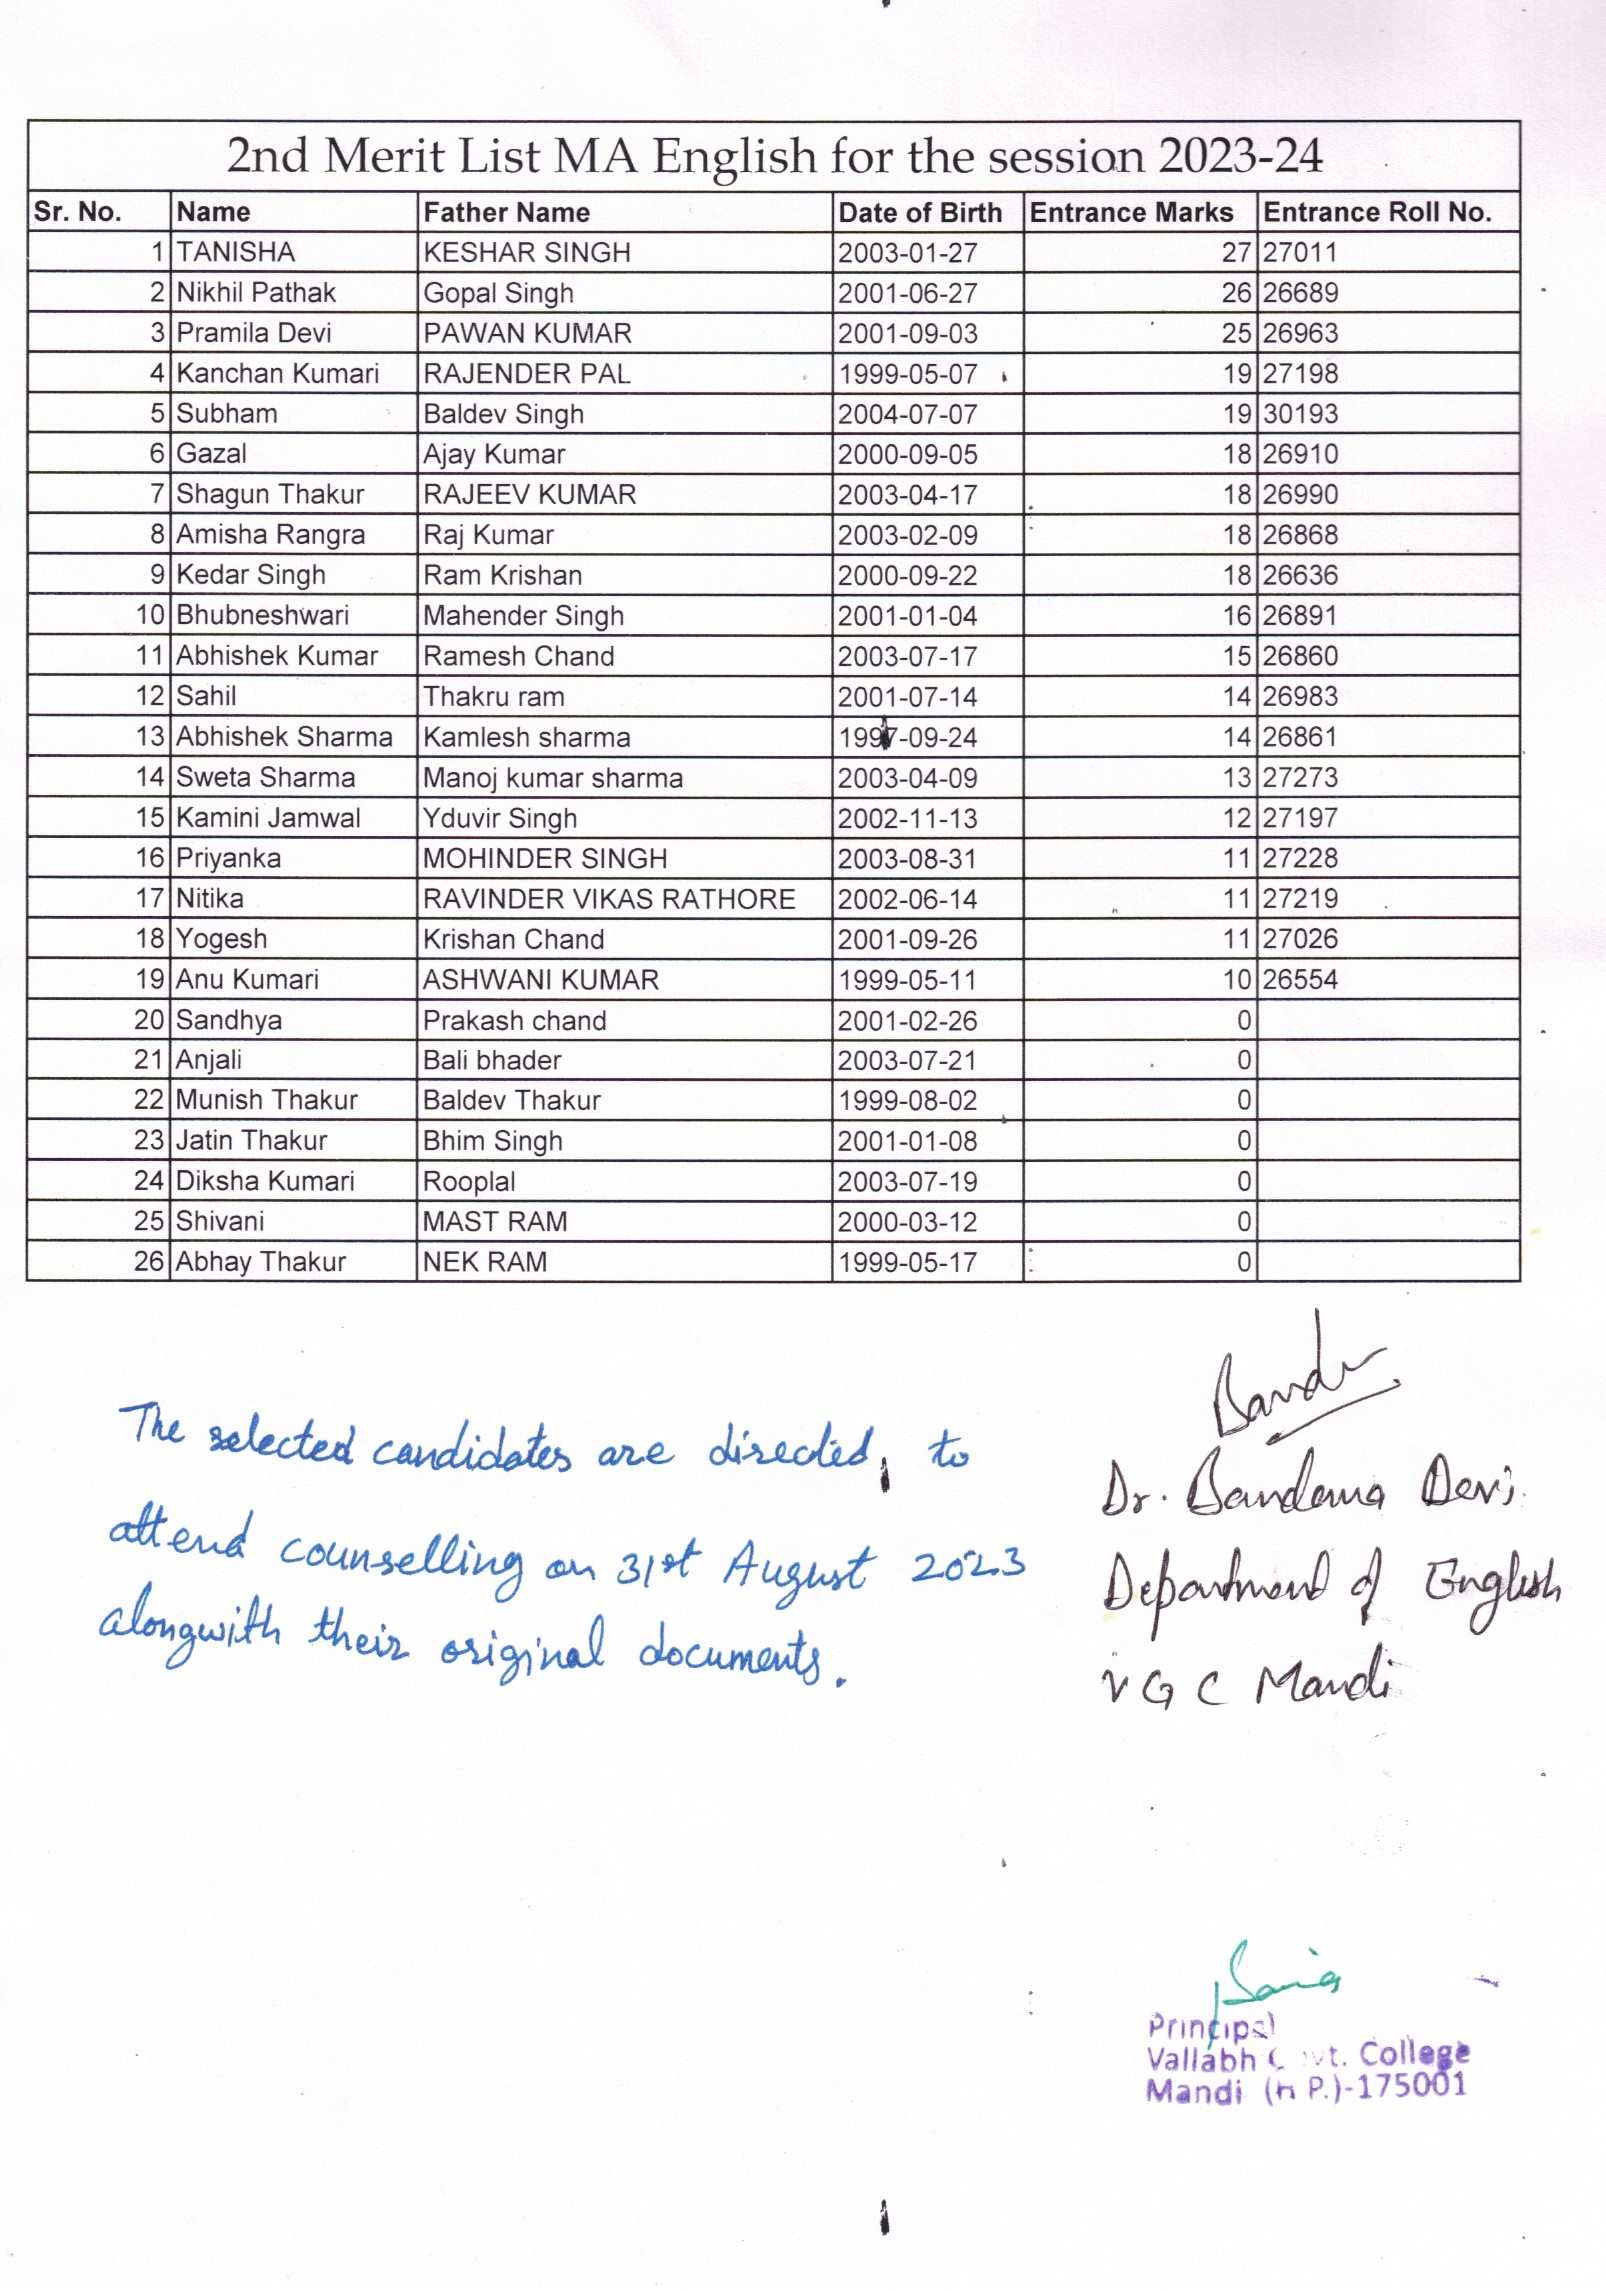 2nd Merit List MA English for the session 2023-24
Sr. No. Name Father Name Date of Birth Entrance Marks Entrance Roll No.
1 TANISHA KESHAR SINGH 2003-01-27 27 27011
2 Nikhil Pathak Gopal Singh 2001-06-27 26 26689
3 Pramila Devi PAWAN KUMAR 2001-09-03 25 26963
4 Kanchan Kumari RAJENDER PAL 1999-05-07 19 27198
5 Subham Baldev Singh 2004-07-07 19 30193
6 Gazal Ajay Kumar 2000-09-05 18 26910
7 Shagun Thakur RAJEEV KUMAR 2003-04-17 18 26990
8 Amisha Rangra Raj Kumar 2003-02-09 18 26868
9 Kedar Singh Ram Krishan 2000-09-22 18 26636
10 Bhubneshwari Mahender Singh 2001-01-04 16 26891
11 Abhishek Kumar Ramesh Chand 2003-07-17 15 26860
12 Sahil Thakru ram 2001-07-14 14 26983
13 Abhishek Sharma Kamlesh sharma 1997-09-24 14 26861
14 Sweta Sharma Manoj kumar sharma 2003-04-09 13 27273
15 Kamini Jamwal Yduvir Singh 2002-11-13 12 27197
16 Priyanka MOHINDER SINGH 2003-08-31 11 27228
17 Nitika RAVINDER VIKAS RATHORE 2002-06-14 11 27219
18 Yogesh Krishan Chand 2001-09-26 11 27026
19 Anu Kumari ASHWANI KUMAR 1999-05-11 10 26554
20 Sandhya Prakash chand 2001-02-26 0
21 Anjali Bali bhader 2003-07-21 0
22 Munish Thakur Baldev Thakur 1999-08-02 0
23 Jatin Thakur Bhim Singh 2001-01-08 0
24 Diksha Kumari Rooplal 2003-07-19 0
25 Shivani MAST RAM 2000-03-12 0
26 Abhay Thakur NEK RAM 1999-05-17 0
The selected candidates are directed to
attend counselling on 31st August 2023
alongwith their original documents.
Dr. Bandana Devi
Department of English
VGC Mandi
Principal
Vallabh Govt. College
Mandi (H.P.)-175001